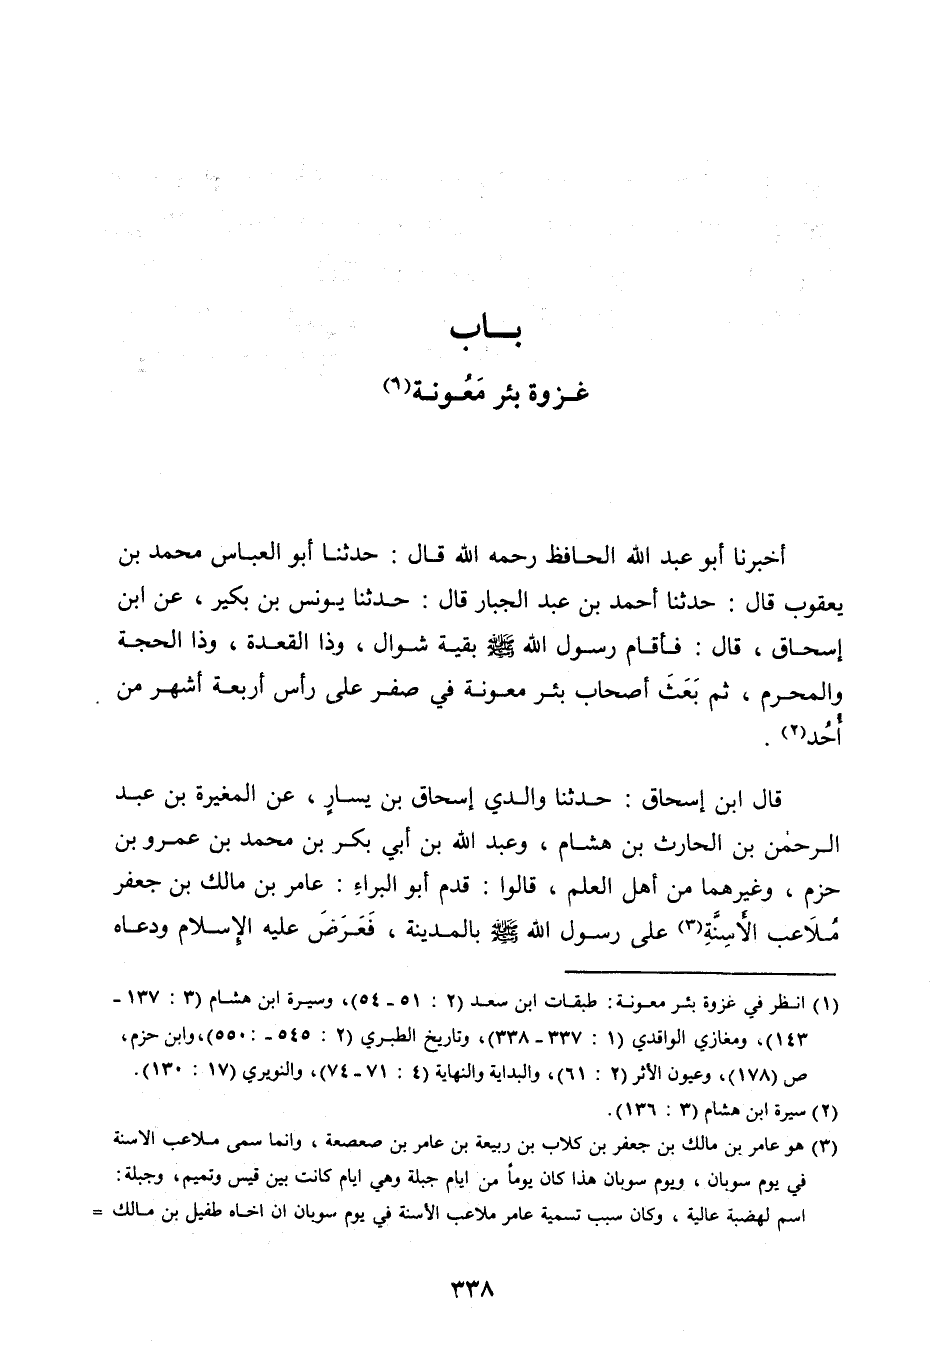 بــاب
غـزوة بئر مَعُونـة(٦)
أخبرنا أبو عبد الله الحـافظ رحمه الله قـال : حدثنـا أبو العبـاس محمـد بن
يعقوب قال : حدثنا أحمد بن عبد الجبار قال : حـدثنا يـونس بن بكير ، عن ابن
إسحـاق ، قال : فـأقـام رسـول الله ﷺ بقيـة شـوال ، وذا القعـدة ، وذا الحجـة
والمحـرم ، ثم بَعَثَ أصحاب بئـر معـونـة في صفـر على رأس أربعـة أشهـر من
أُحُد(٢) .
قال ابن إسحاق : حـدثنا والـدي إسحاق بن يسـارٍ ، عن المغيرة بن عبـد
الـرحمٰن بن الحارث بن هشـام ، وعبد الله بن أبي بكـر بن محمـد بن عمـرو بن
حزم ، وغيرهما من أهل العلم ، قالوا : قدم أبو البراءِ : عامر بن مالك بن جعفر
مُـلَاعب الأَسِنَّةِ(٣) على رسـول الله ﷺ بالمـدينة ، فَعَـرَضَ عليه الإِسـلام ودعـاه
(١) انـظر في غزوة بئـر معـونـة: طبقـات ابن سعـد (٢ : ٥١ ـ ٥٤)، وسيـرة ابن هشـام (٣ : ١٣٧ ـ
١٤٣)، ومغازي الواقدي (١ : ٣٣٧ ـ ٣٣٨)، وتاريخ الطبـري (٢ : ٥٤٥ ـ :٥٥٠)،وابن حزم،
ص (١٧٨)، وعيون الأثر (٢ : ٦١)، والبداية والنهاية (٤ : ٧١ ـ ٧٤)، والنويري (١٧ : ١٣٠).
(٢) سيرة ابن هشام (٣ : ١٣٦).
(٣) هو عامر بن مالك بن جعفر بن كلاب بن ربيعة بن عامر بن صعصعة ، وانما سمى مـلاعب الاسنة
في يوم سوبان ، ويوم سوبان هذا كان يوماً من ايام جبلة وهي ايام كانت بين قيس وتميم، وجبلة:
اسم لهضبة عالية ، وكان سبب تسمية عامر ملاعب الأسنة في يوم سوبان ان اخـاه طفيل بن مـالك =
٣٣٨